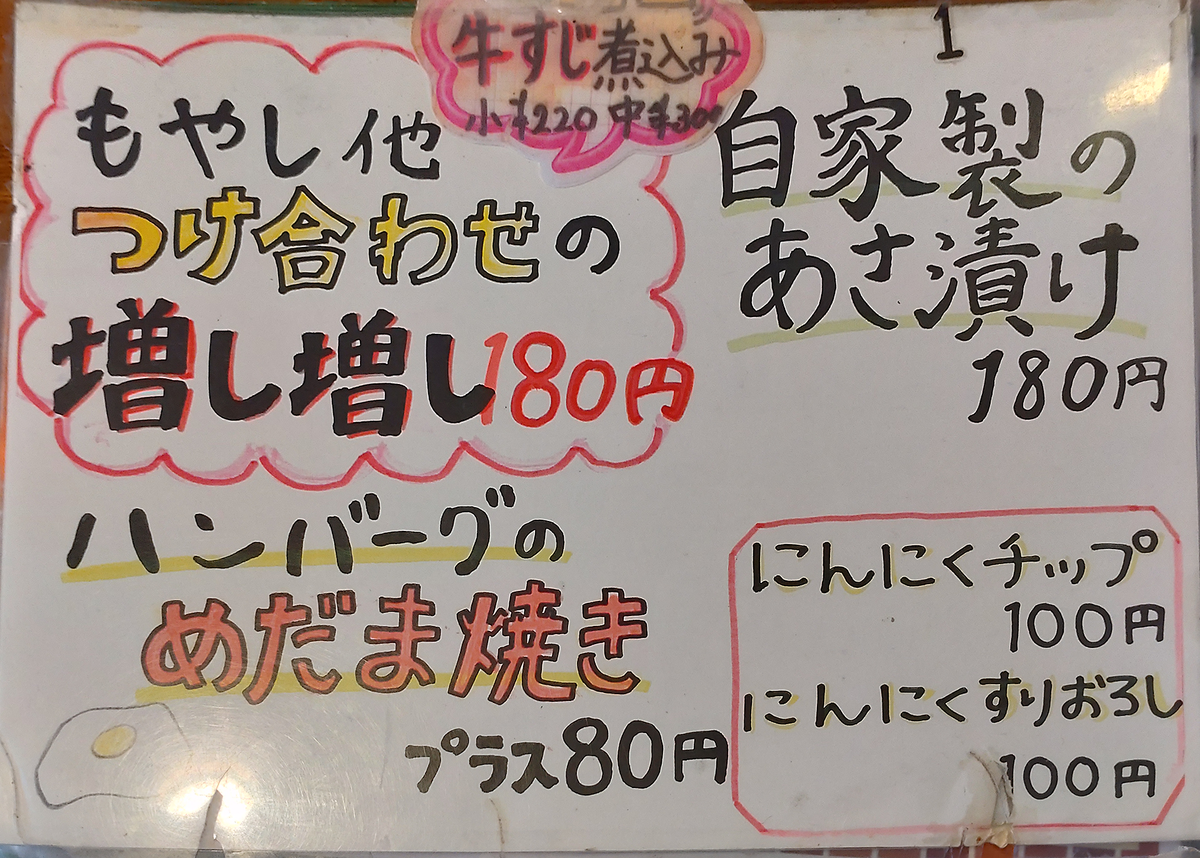 牛すじ煮込み
小¥220 中¥300
1
もやし他
つけ合わせの
増し増し180円
自家製の
あさ漬け
180円
ハンバーグの
めだま焼き
プラス80円
にんにくチップ
100円
にんにくすりおろし
100円